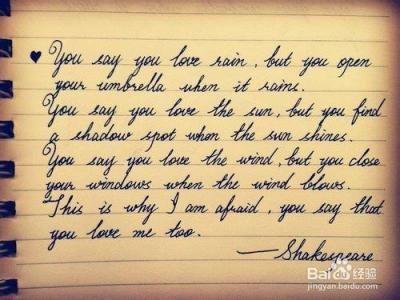 ♥ You say you love rain, but you open
your umbrella when it rains.
You say you love the sun, but you find
a shadow spot when the sun shines.
You say you love the wind, but you close
your windows when the wind blows.
This is why I am afraid, you say that
you love me too.
—Shakespeare
Baidu经验
jingyan.baidu.com